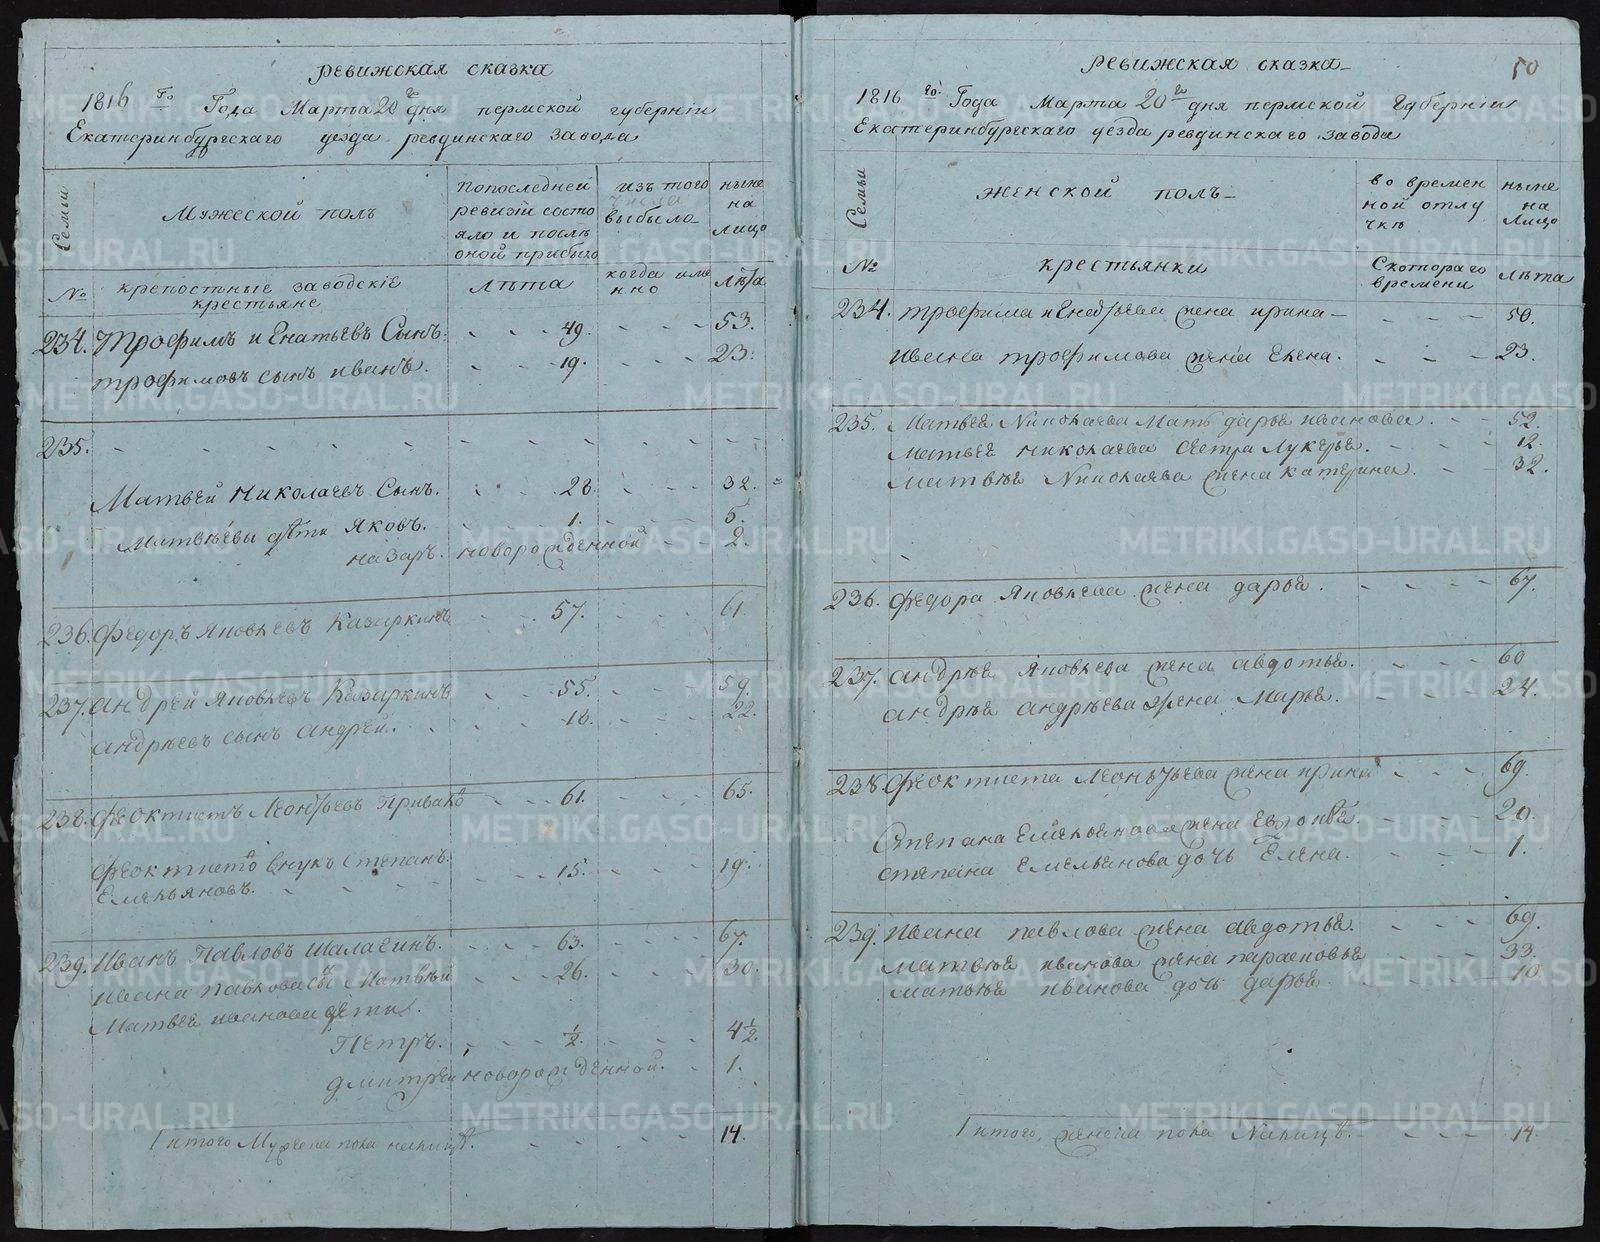 ревижская сказка
1816 го Года Марта 20 го дня пермской губерніи
Екатеринбургскаго уезда ревдинскаго завода
Семьи
Мужеской полъ
попоследней ревизіи состояло и послѣ оной прибыло
изъ того числа выбыло
ныне на лицо
№
крепостные заводскіе крестьяне
лѣта
когда имянно
лѣта
234. Трофимъ игнатьевъ Сынъ. 49. 53.
трофимовъ сынъ иванъ. 19. 23.
235.
Матвей Николаевъ Сынъ. 28. 32.
Матвѣевы дѣти Яковъ. 1. 5.
назаръ. новорожденной 2.
236. Федоръ Яковлевъ Казаркинъ 57. 61.
237. андрей Яковлевъ Казаркинъ 55. 59.
андрѣевъ сынъ андрей. 18. 22.
238. феоктистъ Леонтьевъ 61. 65.
феоктистовъ внукъ Степанъ. 15. 19.
Емельяновъ.
239. Иванъ Павловъ Шалагинъ. 63. 67.
ивана павлова сынъ Матвѣй 26. 30.
Матвея иванова дети
Петръ. ½. 4½.
дмитрей новорожденной. 1.
итого Мужеска пола налицѣ. 14.
ревижская сказка
50
1816 го Года Марта 20 го дня пермской Губерніи
Екатеринбургскаго уезда ревдинскаго завода
Семьи
женской полъ
во временной отлучкѣ
ныне на лицо
№
крестьянки
Скотораго времени
лѣта
234. трофима игнатьева жена ирина 50.
ивана трофимова жена Елена. 23.
235. Матвея Николаева Мать дарья иванова. 52.
Матвея николаева сестра Лукерья. 12.
Матвѣя Николаева жена катерина. 32.
236. федора Яковлева жена дарья. 67.
237. андрѣя Яковлева жена авдотья. 60
андрѣя андрѣева жена Марья. 24.
238. феоктиста Леонтьева жена ирина 69.
Степана Емельянова жена 20.
степана Емельянова дочь Елена. 1.
239. ивана павлова жена авдотья. 69.
Матвѣя иванова жена парасковья 33.
Матвѣя иванова дочь дарья 10
итого женска пола Налицѣ. 14.
METRIKI.GASO-URAL.RU